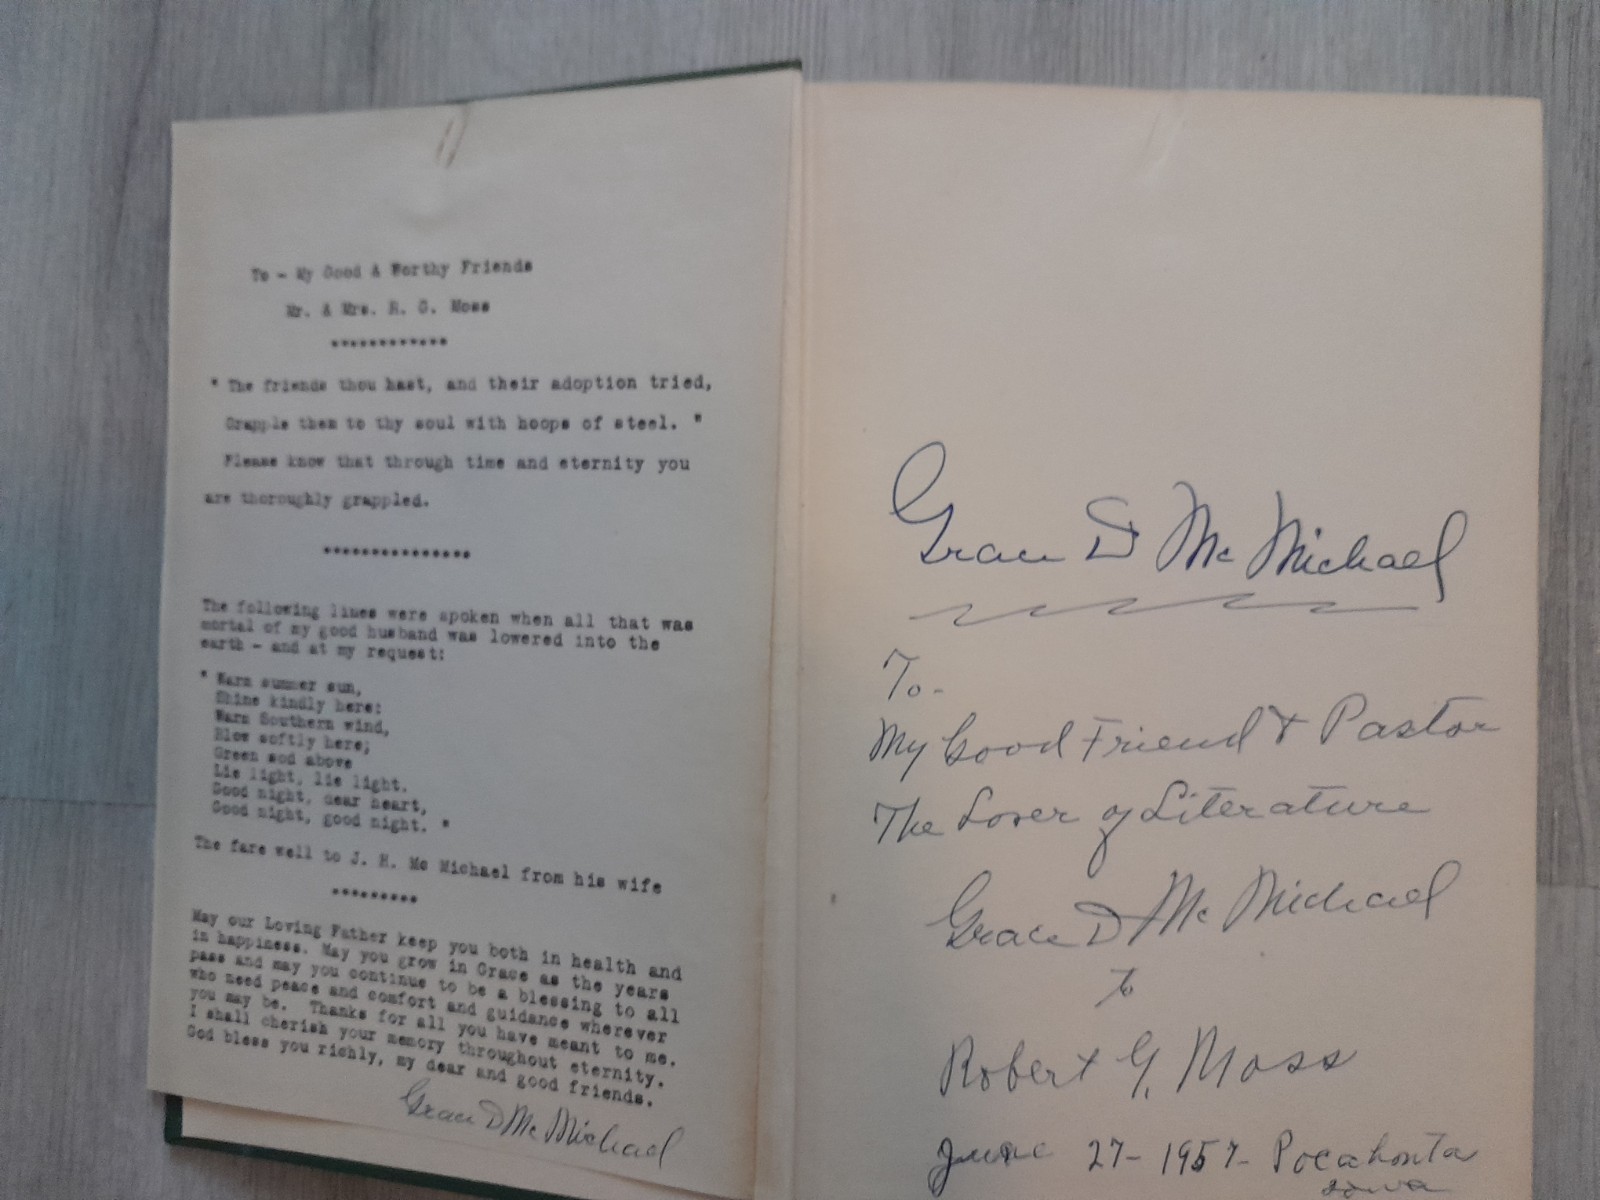 To - My Good & Worthy Friends
Mr. & Mrs. R. G. Moss
************
" The friends thou hast, and their adoption tried,
Grapple them to thy soul with hoops of steel. "
Please know that through time and eternity you
are thoroughly grappled.
***************
The following lines were spoken when all that was
mortal of my good husband was lowered into the
earth - and at my request:
" Warm summer sun,
Shine kindly here:
Warm Southern wind,
Blow softly here;
Green sod above
Lie light, lie light.
Good night, dear heart,
Good night, good night. "
The fare well to J. H. Mc Michael from his wife
*********
May our Loving Father keep you both in health and
in happiness. May you grow in Grace as the years
pass and may you continue to be a blessing to all
who need peace and comfort and guidance wherever
you may be. Thanks for all you have meant to me.
I shall cherish your memory throughout eternity.
God bless you richly, my dear and good friends.
Grace D Mc Michael
Grace D Mc Michael
To-
My Good Friend & Pastor
The Lover of Literature
Grace D Mc Michael
to
Robert G. Moss
June 27- 1957- Pocahontas
Iowa